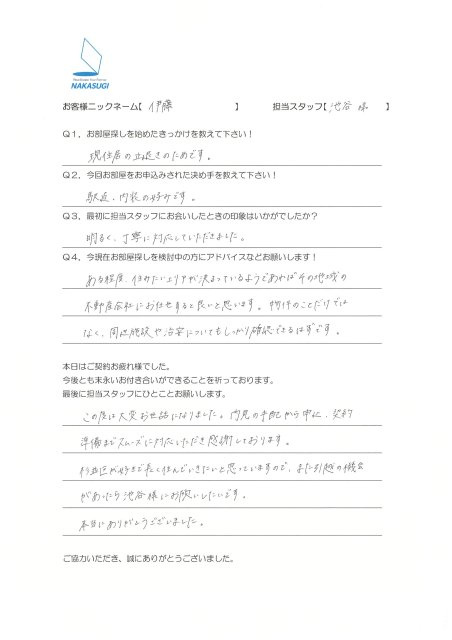 NAKASUGI
お客様ニックネーム【 伊藤 】 担当スタッフ【 池谷 様 】
Q1、お部屋探しを始めたきっかけを教えて下さい！
現住居の立退きのためです。
Q2、今回お部屋をお申込みされた決め手を教えて下さい！
駅近、内装の好みです。
Q3、最初に担当スタッフにお会いしたときの印象はいかがでしたか？
明るく、丁寧に対応していただきました。
Q4、今現在お部屋探しを検討中の方にアドバイスなどお願いします！
ある程度、住みたいエリアが決まっているようであればその地域の
不動産会社にお任せすると良いと思います。物件のことだけでは
なく、周辺施設や治安についてもしっかり確認できるはずです。
本日はご契約お疲れ様でした。
今後とも末永いお付き合いができることを祈っております。
最後に担当スタッフにひとことお願いします。
この度は大変お世話になりました。内見の手配から申込、契約
準備までスムーズに対応いただき感謝しております。
杉並区が好きで長く住んでいきたいと思っていますので、また引越の機会
があったら池谷様にお願いしたいです。
本当にありがとうございました。
ご協力いただき、誠にありがとうございました。